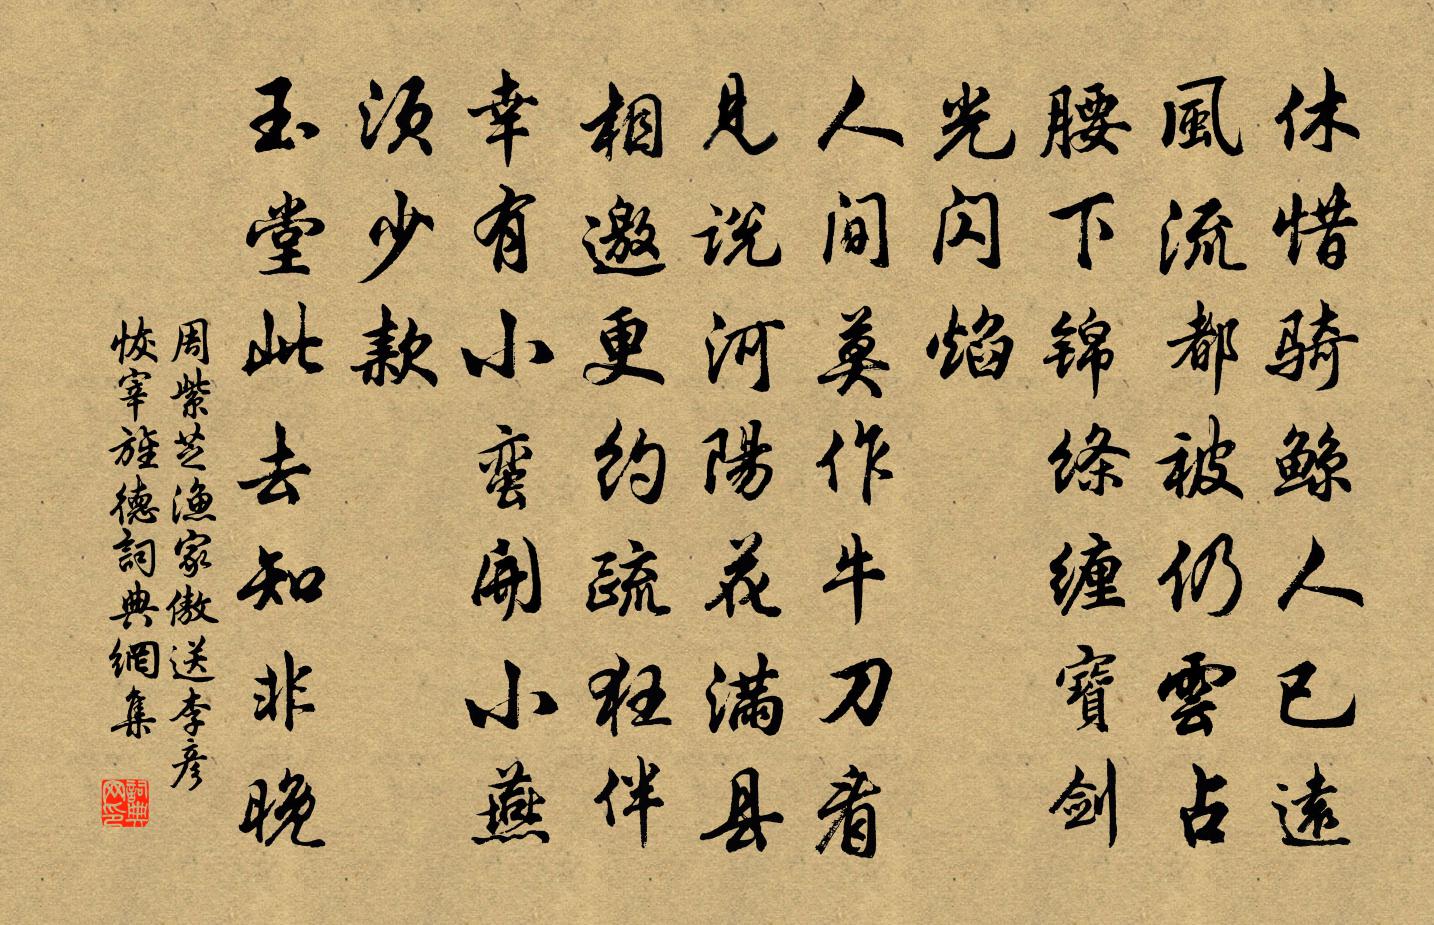 休惜骑鲸人已远
風流都被仍雲占
腰下锦絛缠寶剑
光闪焰
人间莫作牛刀看
見说河陽花满县
相邀更约疏狂伴
幸有小蛮開小燕
须少款
玉堂此去知非晚
周紫芝渔家傲送李彦
恢宰旌德詞典網集
詞典网印